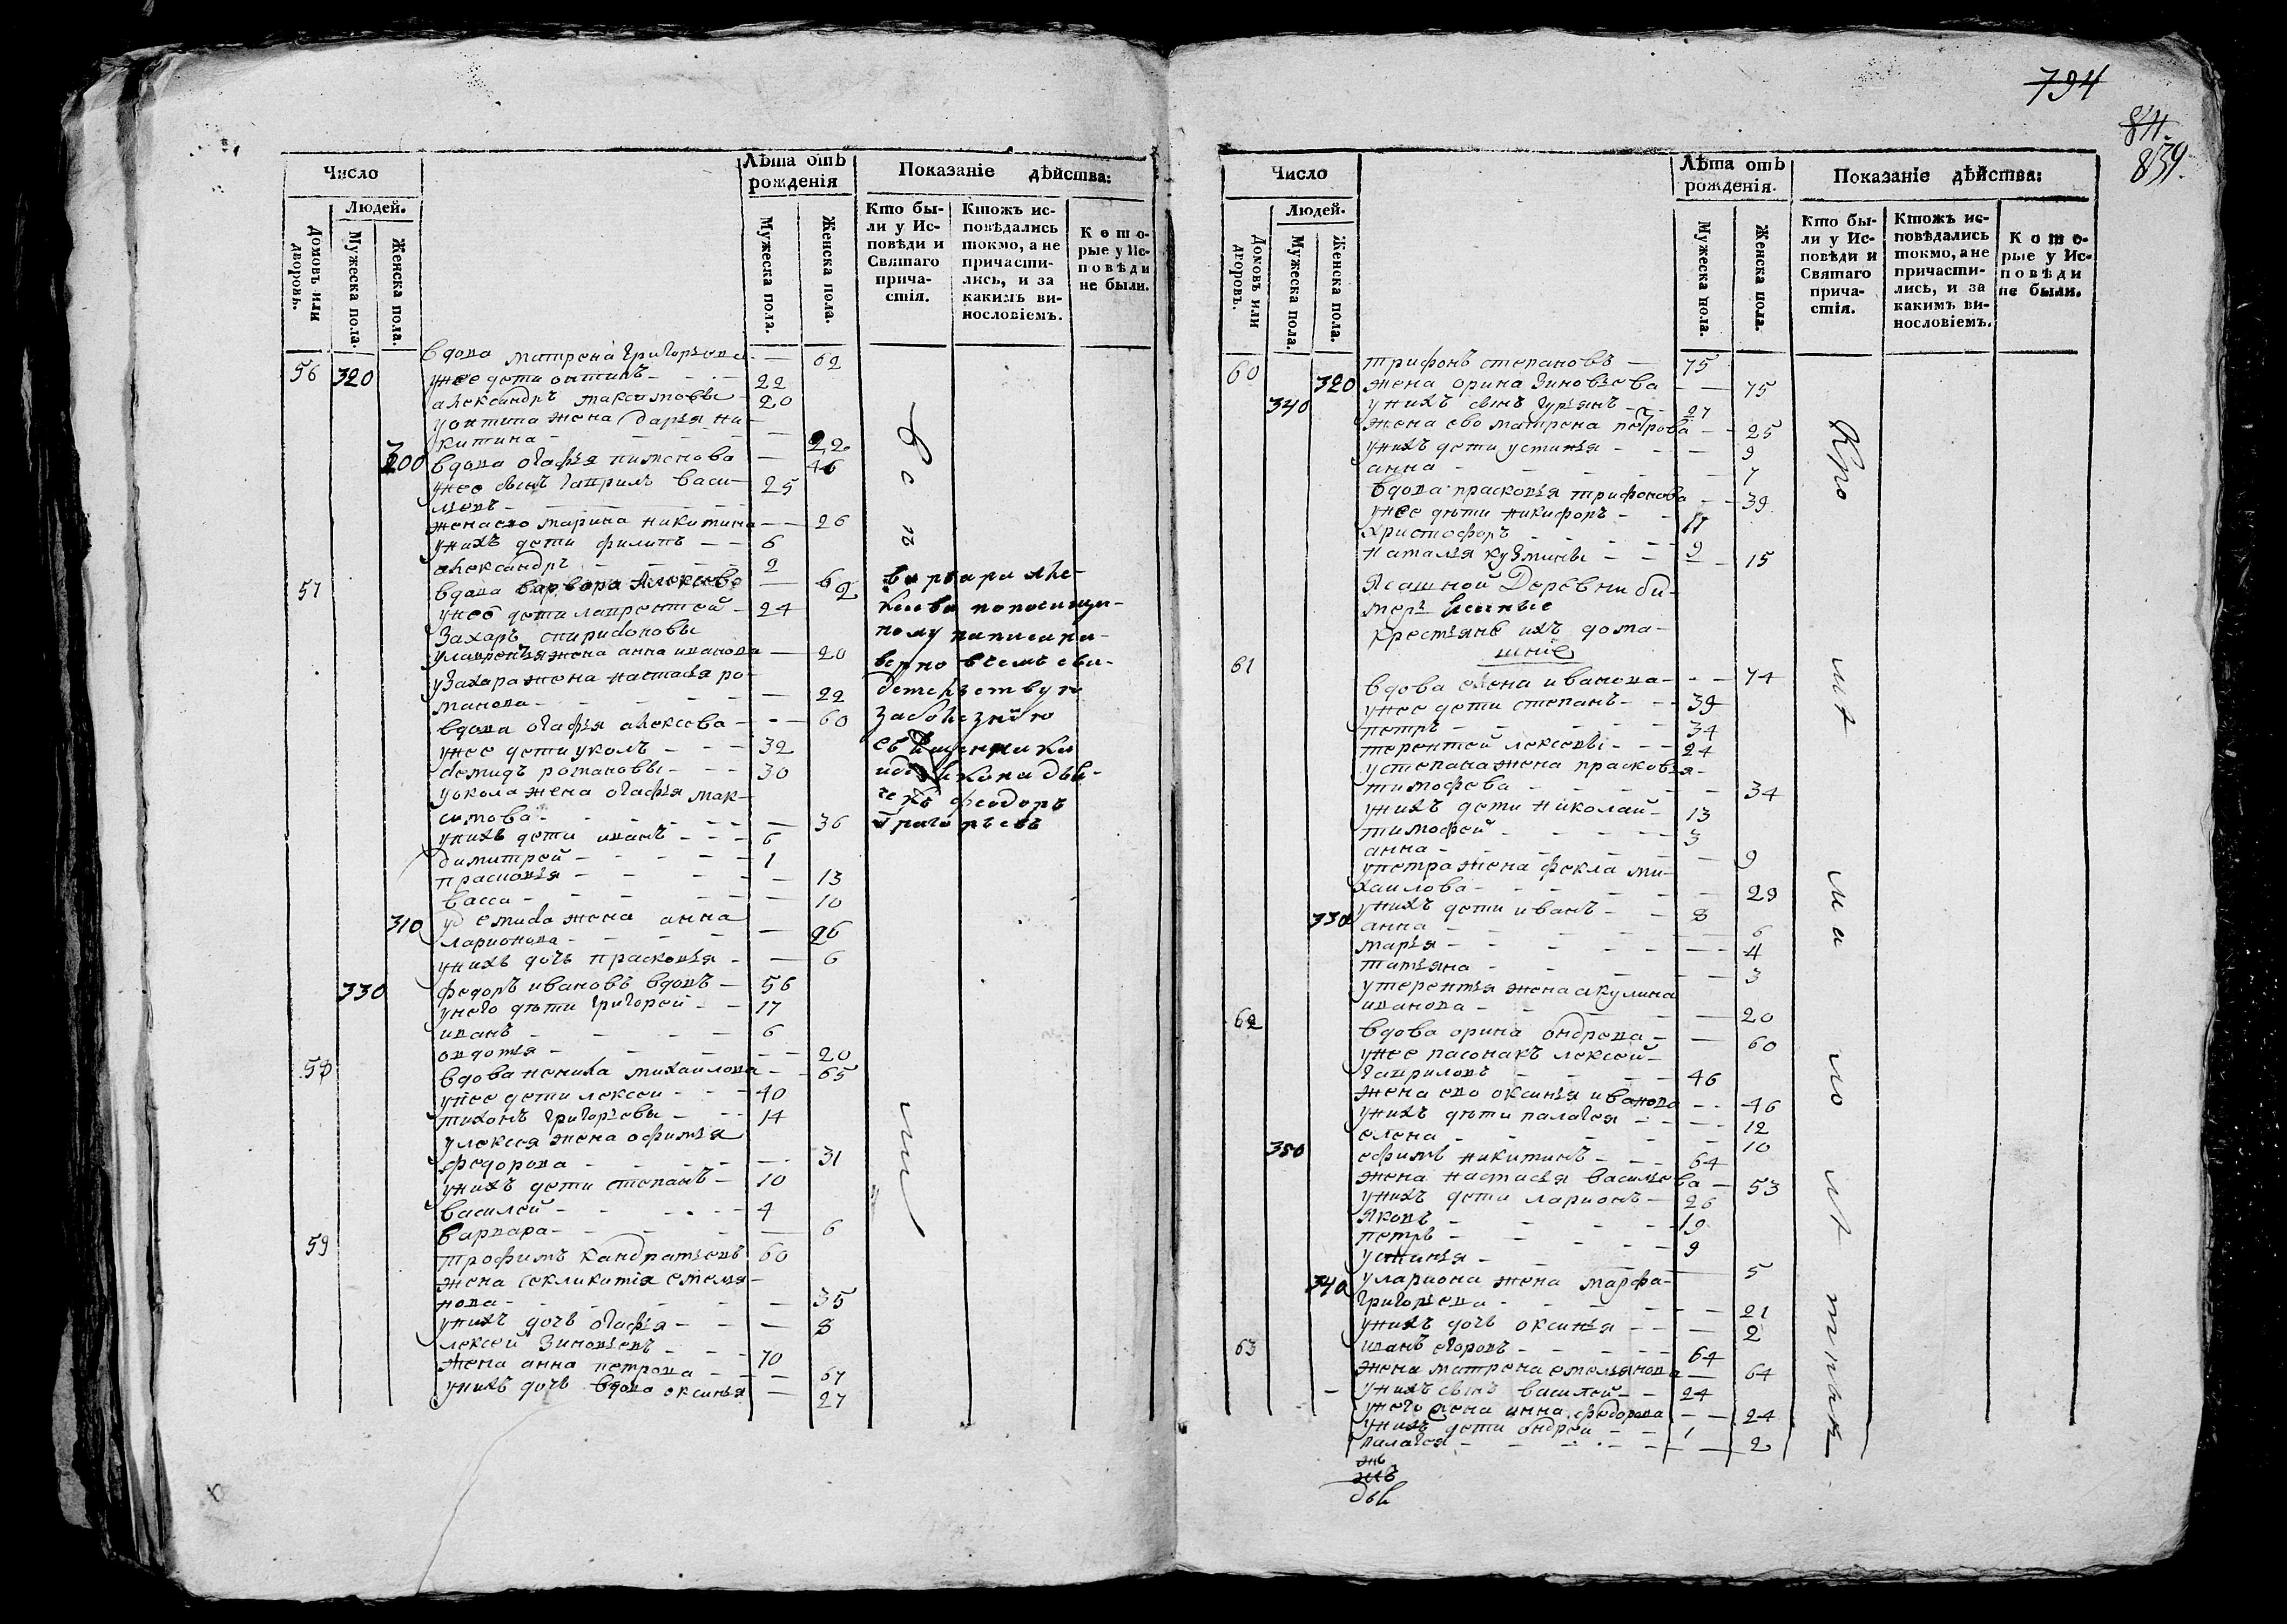 Число
Людей.
Домовъ или дворовъ.
Мужеска пола.
Женска пола.
Лѣта отъ рожденія
Мужеска пола.
Женска пола.
Показаніе дѣйства:
Кто бы-
ли у Ис-
повѣди и
Святаго
прича-
стія.
Ктожъ ис-
повѣдались
токмо, а не
причасти-
лись, и за
какимъ ви-
нословіемъ.
Кото-
рые у Ис-
повѣди
не были.
вдова матрена григорьева — 62
56 320 унее дети антипъ — 22
александръ максимовы — 20
уонтипа жена дарья ни-
китина — 22
300 вдова огафья пименова — 46
унее сынъ гаврилъ васи-
льевъ — 25
жена ево марина никитина — 26
унихъ дети филипъ — 6
александръ — 2
57 вдова варвора Алексева — 62
унее дети лаврентей — 24
Захаръ спиридоновы
улаврентья жена анна иванова — 20
уЗахара жена настасья ро-
манова — 22
вдова огафья алексева — 60
унее дети уколъ — 32
демидъ романовы — 30
уокола жена огафья мак-
симова — 36
унихъ дети иванъ — 6
димитрей — 1
прасковья — 13
васса — 10
310 удемида жена анна
ларионова — 26
унихъ дочь прасковья — 6
330 федоръ ивановъ вдовъ — 56
унего дѣти григорей — 17
иванъ — 6
овдотья — 20
58 вдова ненила михаилова — 65
унее дети лексеи — 40
тихонъ григорьевы — 14
улексея жена офимья
федорова — 31
унихъ дети степанъ — 10
василей — 4
варвара — 6
59 трофимъ кандратьевъ 60
жена секликития емелья-
нова — 35
унихъ дочь огафья — 8
лексей Зиновьевъ — 70
жена анна петрова — 67
унихъ дочь вдова оксинья — 27
священники
феодоръ
Григорьевъ
794
811.
839.
Число
Людей.
Домовъ или дворовъ.
Мужеска пола.
Женска пола.
Лѣта отъ рожденія.
Мужеска пола.
Женска пола.
Показаніе дѣйства:
Кто бы-
ли у Ис-
повѣди и
Святаго
прича-
стія.
Ктожъ ис-
повѣдались
токмо, а не
причасти-
лись, и за
какимъ ви-
нословіемъ.
Кото-
рые у Ис-
повѣди
не были.
60 трифонъ степановъ — 75
320 жена орина Зиновьева — 75
340 унихъ сынъ гурьянъ — 27
жена ево матрена петрова — 25
унихъ дети устинья — 9
анна — 7
вдова прасковья трифонова — 39
унее дѣти никифоръ — 17
христофоръ — 9
наталья кузмины — 15
Ясашной Деревни би-
мерь
крестьяне ихъ дома-
шние
61 вдова елена иванова — 74
унее дети степанъ — 39
петръ — 34
терентей лексеевы — 24
устепана жена прасковья
тимофева — 34
унихъ дети николай — 13
тимофей — 3
анна — 9
упетра жена фекла ми-
хаилова — 29
унихъ дети иванъ — 8
330 анна — 6
марья — 4
татьяна — 3
утерентья жена акулина
иванова — 20
62 вдова орина ондреева — 60
унее пасонакъ лексей
гавриловъ — 46
жена ево оксинья иванова — 46
унихъ дѣти палагея — 12
елена — 10
350 ефимъ никитинъ — 64
жена настасья васильева — 53
унихъ дети ларионъ — 26
Яковъ — 19
петръ — 9
устинья — 5
340 улариона жена марфа
григорьева — 21
унихъ дочь оксинья — 2
63 иванъ егоровъ — 64
жена матрена емельянова — 64
унихъ сынъ василей — 24
унего жена анна федорова — 24
унихъ дети ондрей — 1
палагея — 2